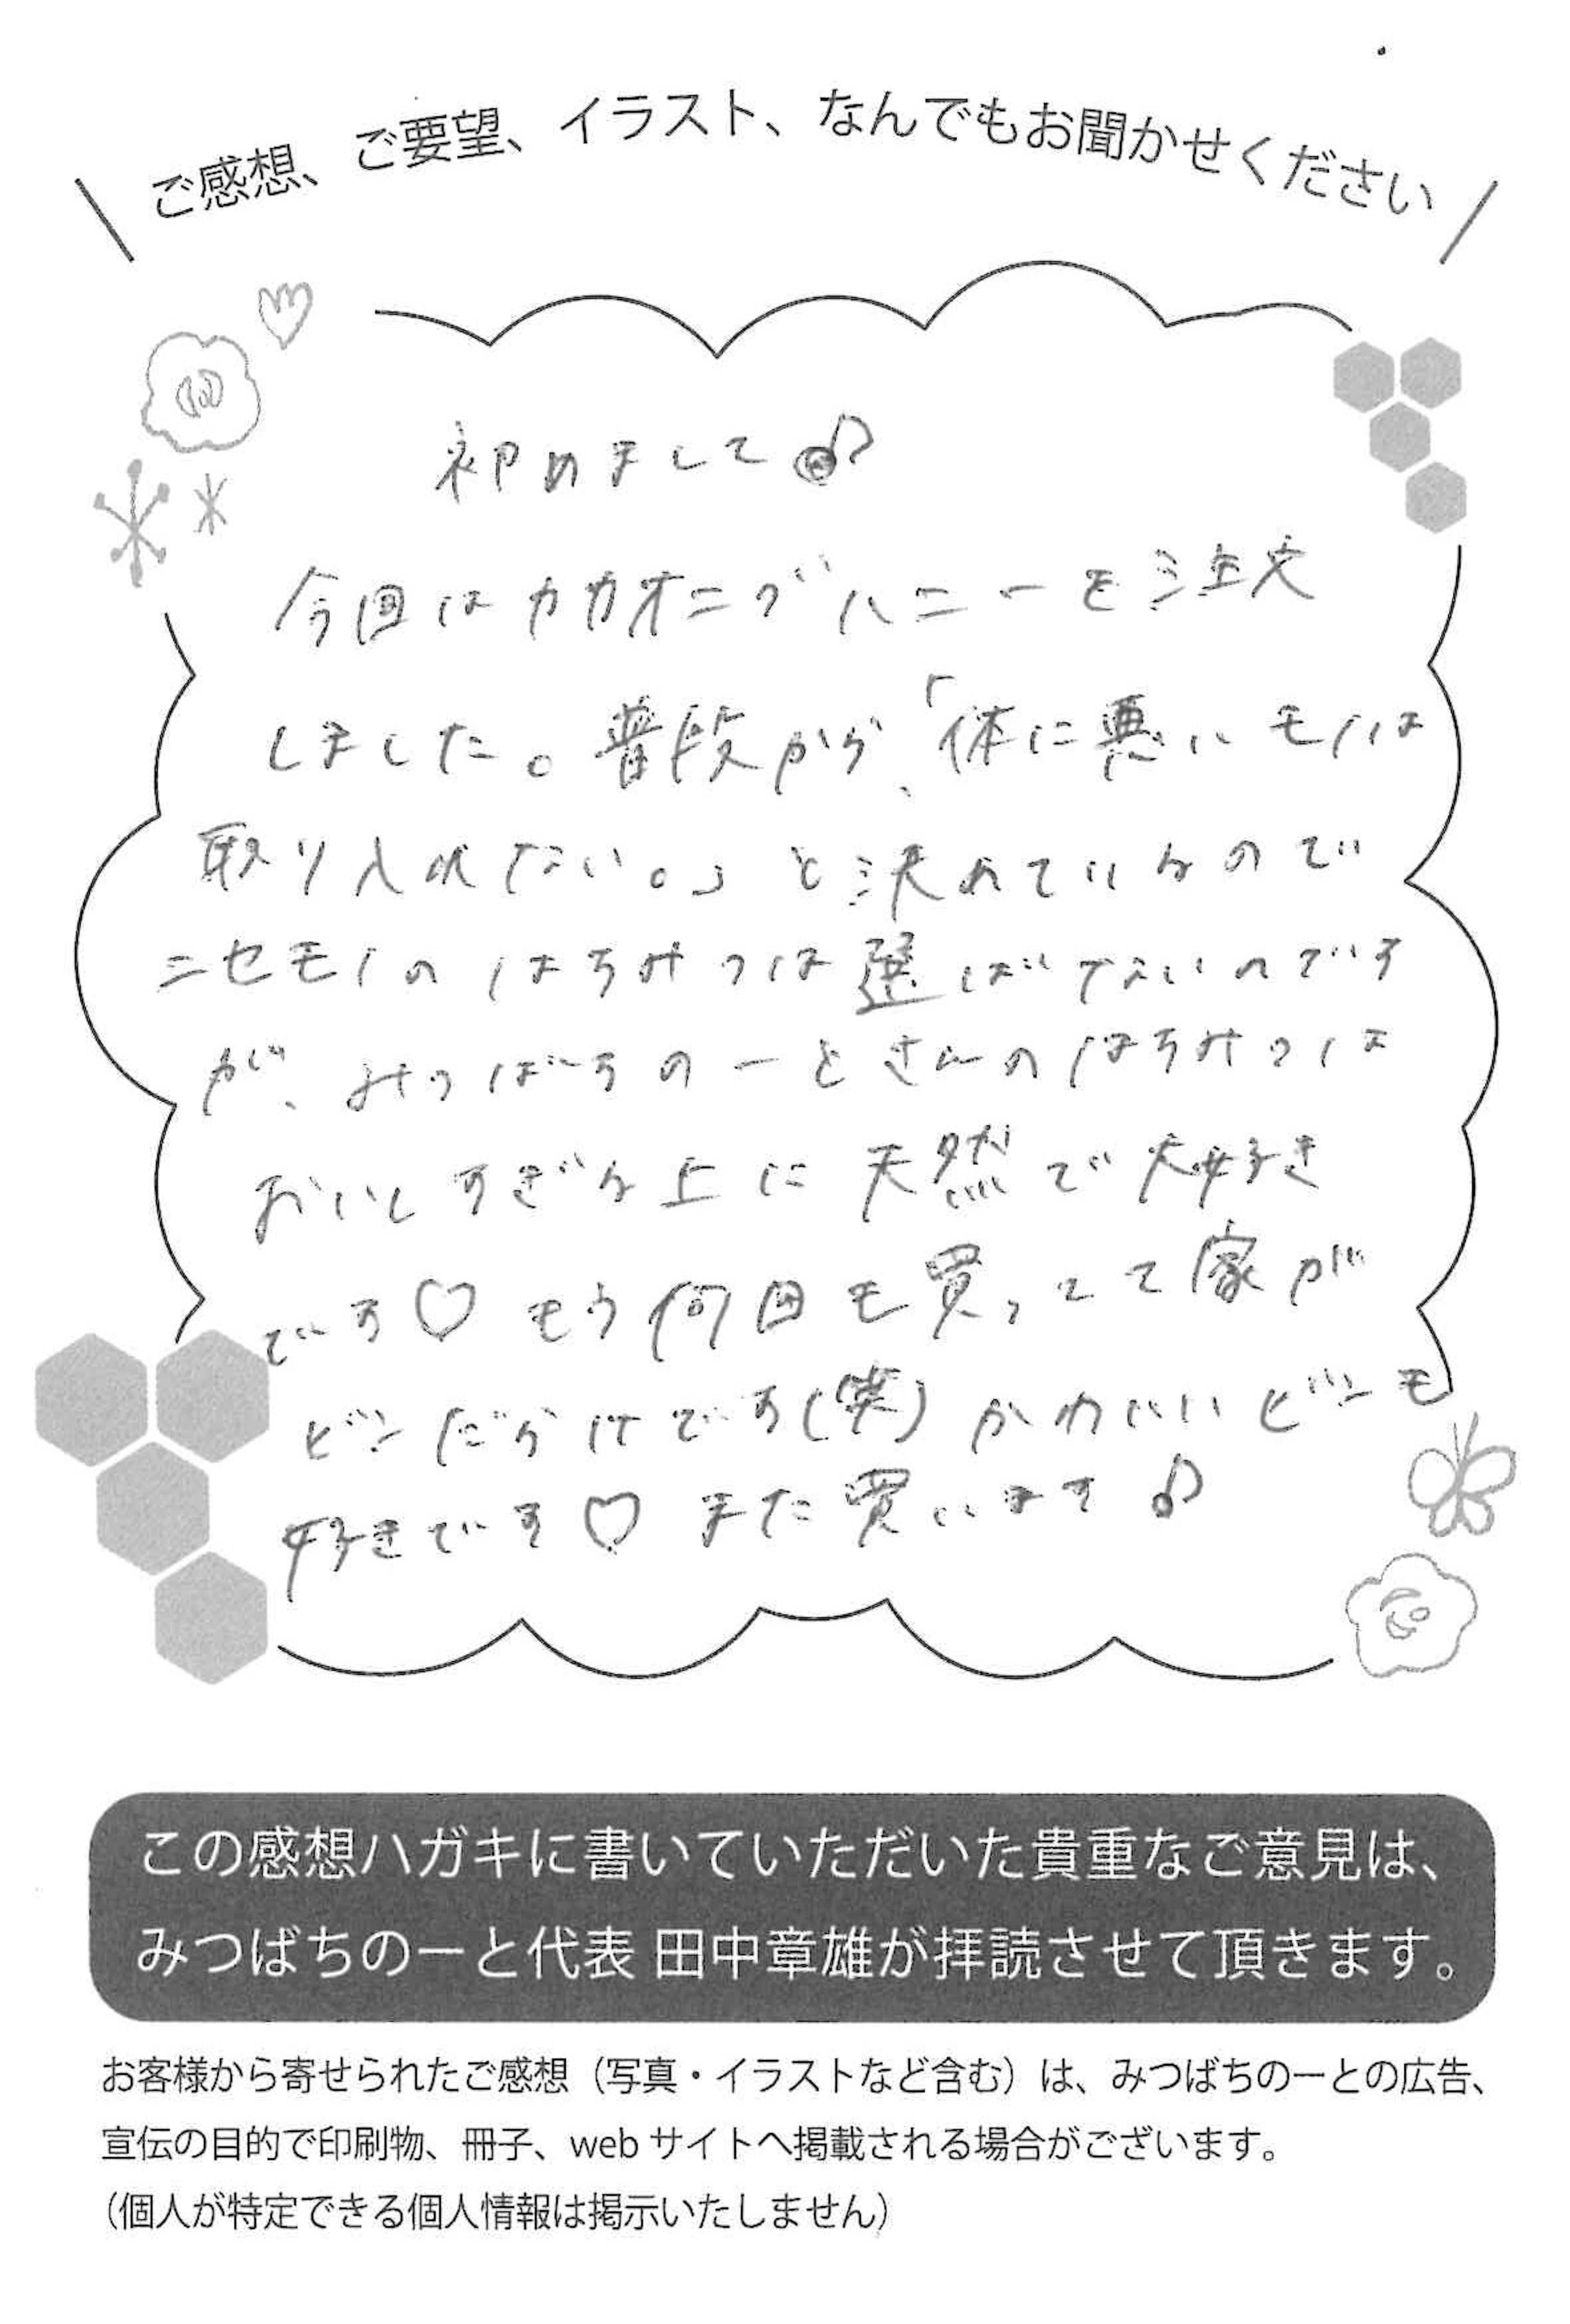 ご感想、ご要望、イラスト、なんでもお聞かせください
初めまして♪
今回はカカオニブハニーを注文
しました。普段から、「体に悪いモノは
取り入れない。」と決めているので
ニセモノのはちみつは選ばないのです
が、みつばちのーとさんのはちみつは
おいしすぎる上に天然で大好き
です♡もう何回も買ってて家が
ビンだらけです(笑)かわいいビンも
好きです♡また買います♪
この感想ハガキに書いていただいた貴重なご意見は、
みつばちのーと代表 田中章雄が拝読させて頂きます。
お客様から寄せられたご感想（写真・イラストなど含む）は、みつばちのーとの広告、
宣伝の目的で印刷物、冊子、webサイトへ掲載される場合がございます。
（個人が特定できる個人情報は掲示いたしません）